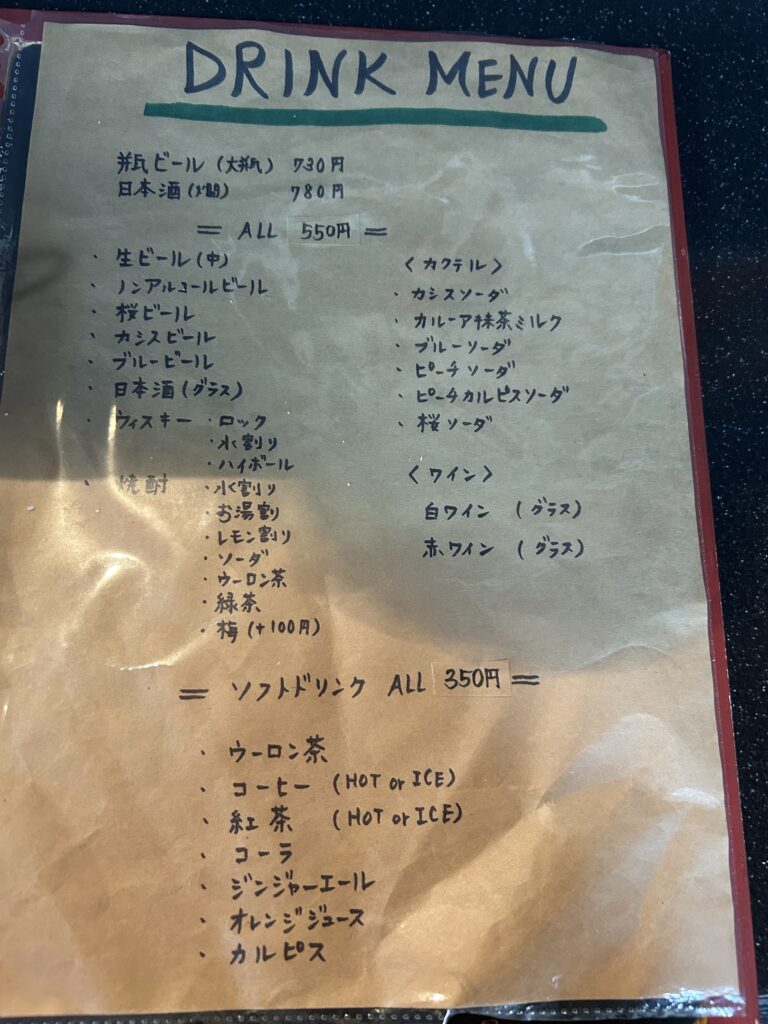 DRINK MENU
瓶ビール (大瓶) 730円
日本酒 (燗) 780円
= ALL 550円 =
・ 生ビール (中)
・ ノンアルコールビール
・ 桜ビール
・ カシスビール
・ ブルービール
・ 日本酒 (グラス)
・ ウィスキー ・ロック
・水割り
・ハイボール
・ 焼酎 ・水割り
・お湯割り
・レモン割り
・ソーダ
・ウーロン茶
・緑茶
・梅 (+100円)
〈カクテル〉
・ カシスソーダ
・ カルーア抹茶ミルク
・ ブルーソーダ
・ ピーチソーダ
・ ピーチカルピスソーダ
・ 桜ソーダ
〈ワイン〉
白ワイン (グラス)
赤ワイン (グラス)
= ソフトドリンク ALL 350円 =
・ ウーロン茶
・ コーヒー (HOT or ICE)
・ 紅茶 (HOT or ICE)
・ コーラ
・ ジンジャーエール
・ オレンジジュース
・ カルピス